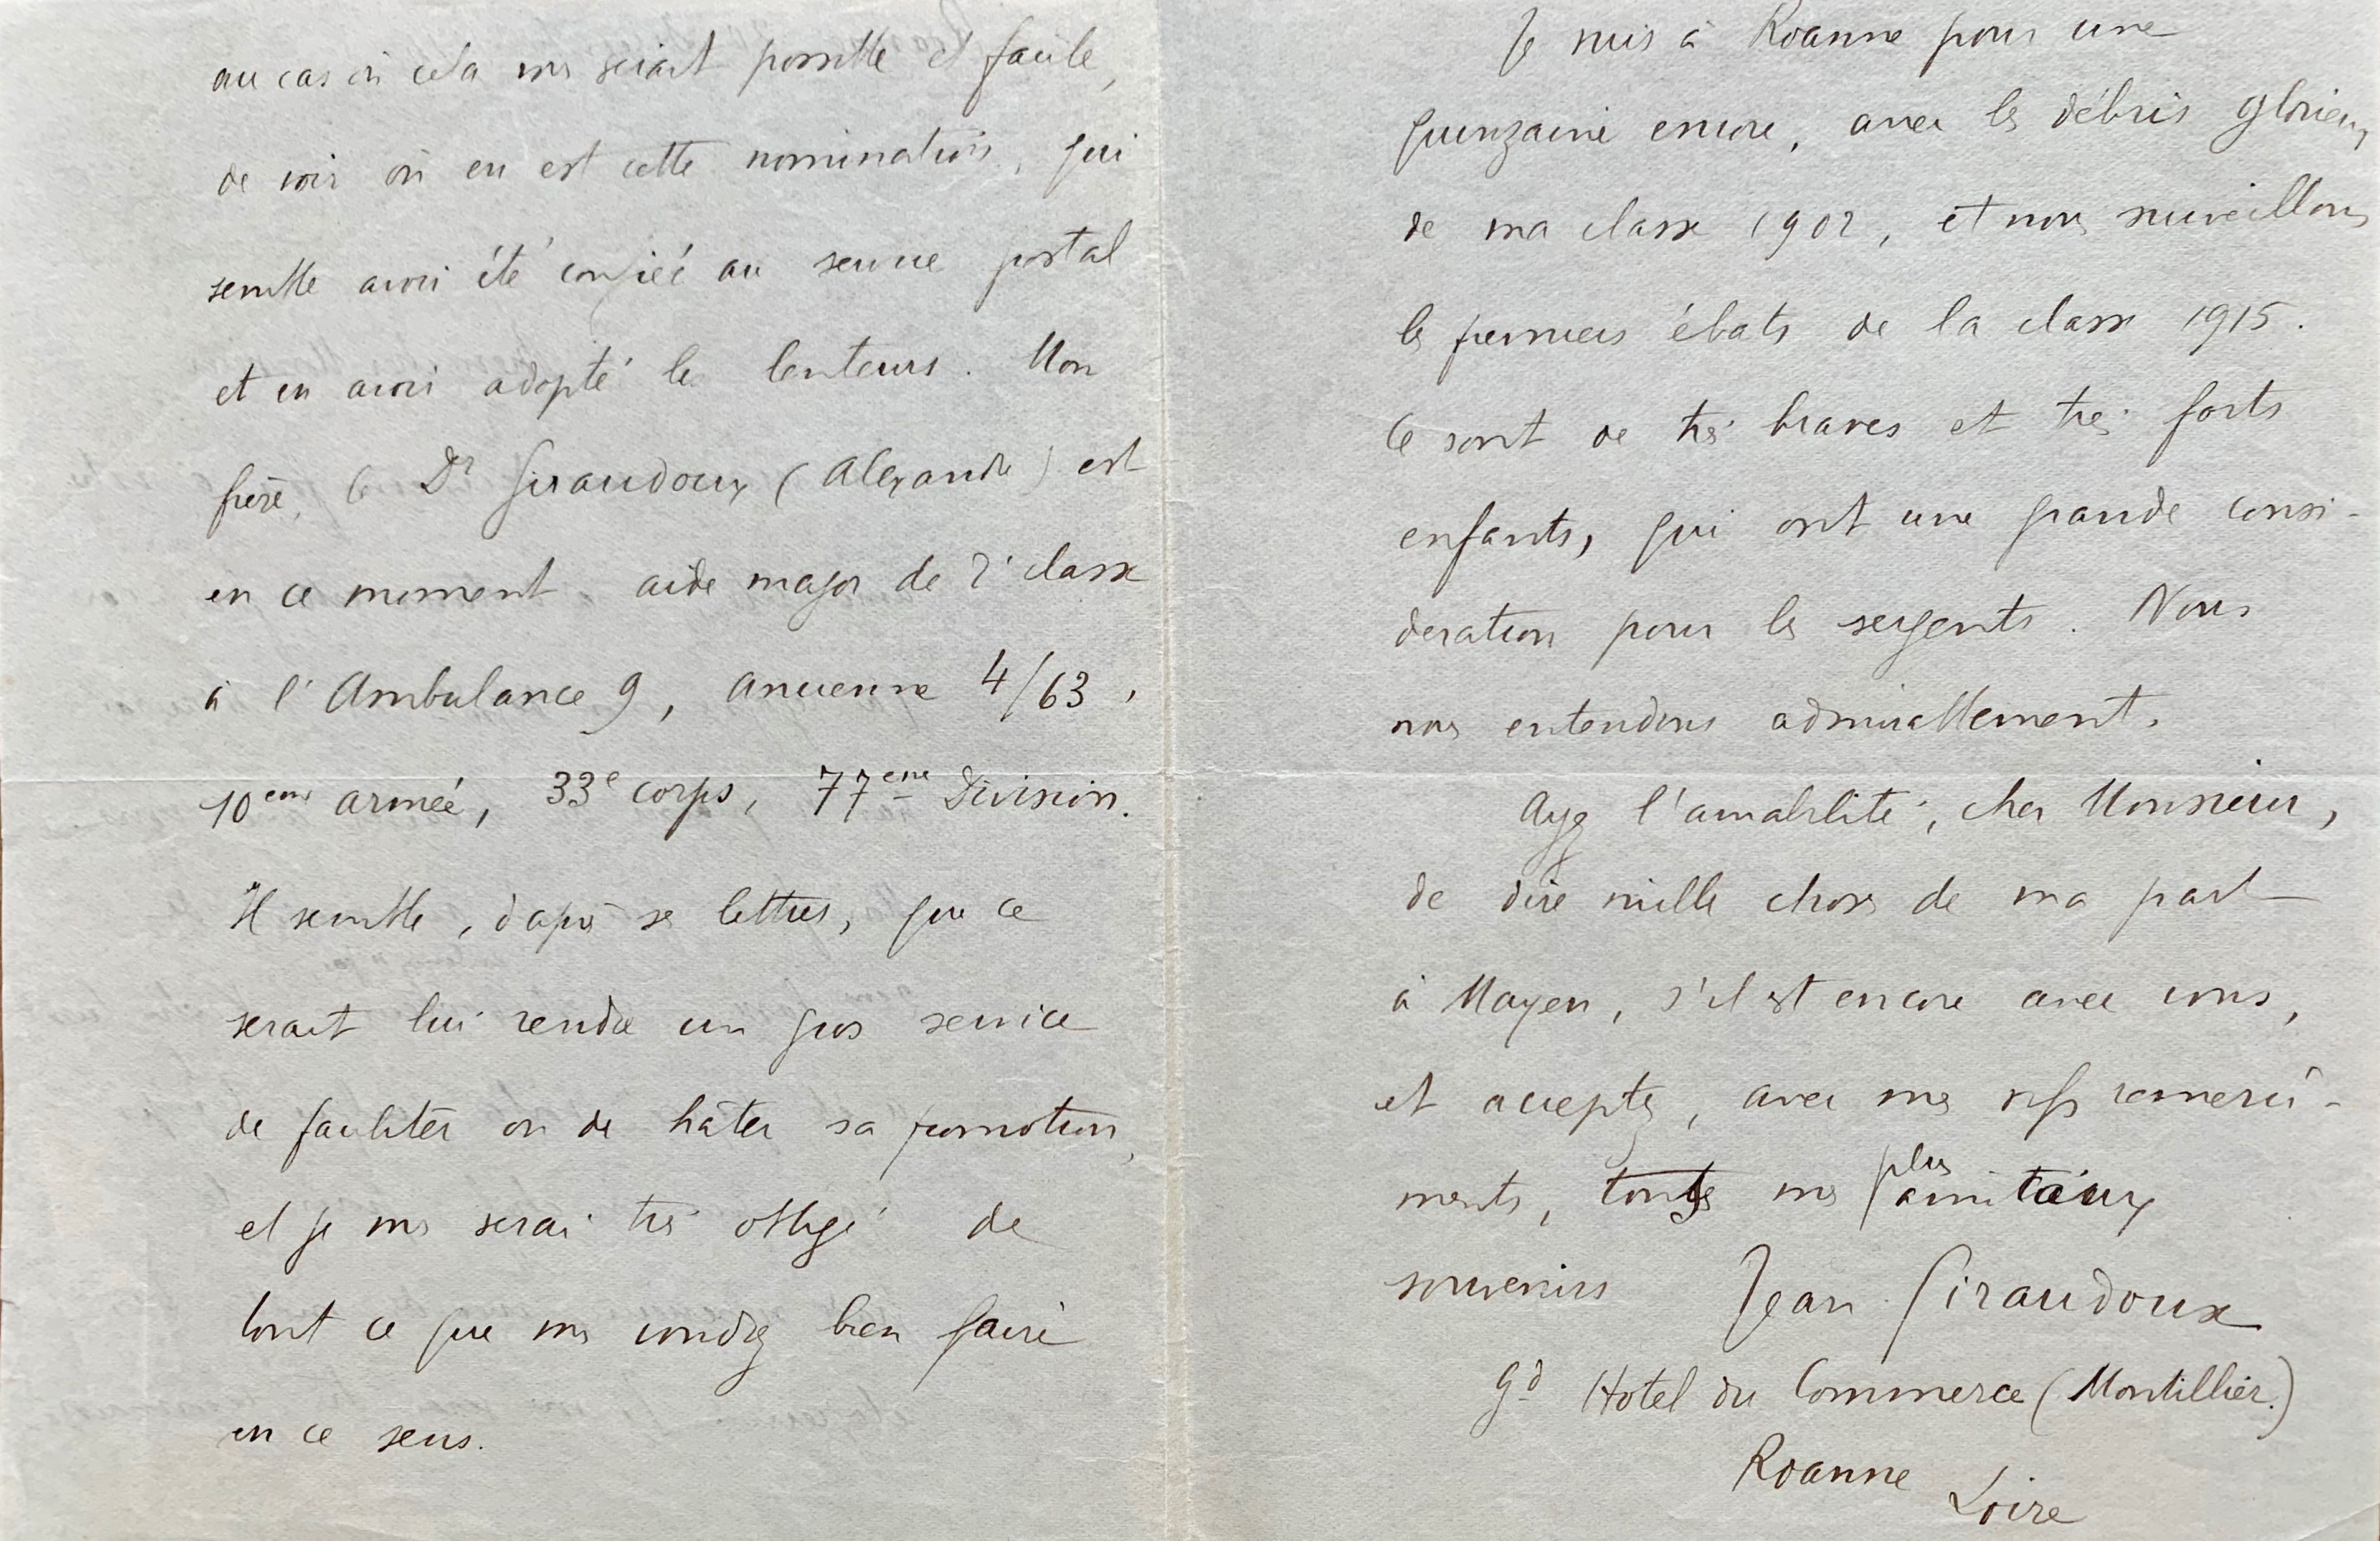 au cas où cela vous serait possible et facile,
de voir où en est cette nomination, qui
semble avoir été confiée au service postal
et en avoir adopté les lenteurs. Mon
frère, le Dr Giraudoux (Alexandre) est
en ce moment aide major de 2e classe
à l'Ambulance 9, ancienne 4/63,
10eme armée, 33e corps, 77eme Division.
Il semble, d'après ses lettres, que ce
serait lui rendre un gros service
de faciliter ou de hâter sa promotion,
et je vous serai très obligé de
tout ce que vous voudrez bien faire
en ce sens.
Je suis à Roanne pour une
quinzaine encore, avec les débris glorieux
de ma classe 1902, et nous surveillons
les premiers ébats de la classe 1915.
Ce sont de très braves et très forts
enfants, qui ont une grande consi-
deration pour les sergents. Nous
nous entendons admirablement.
Ayez l'amabilité, cher Monsieur,
de dire mille choses de ma part
à Mayen, s'il est encore avec vous,
et acceptez, avec mes vifs remercie-
ments, mes plus amitaux
souvenirs Jean Giraudoux
Gd Hotel du Commerce (Montillier.)
Roanne
Loire